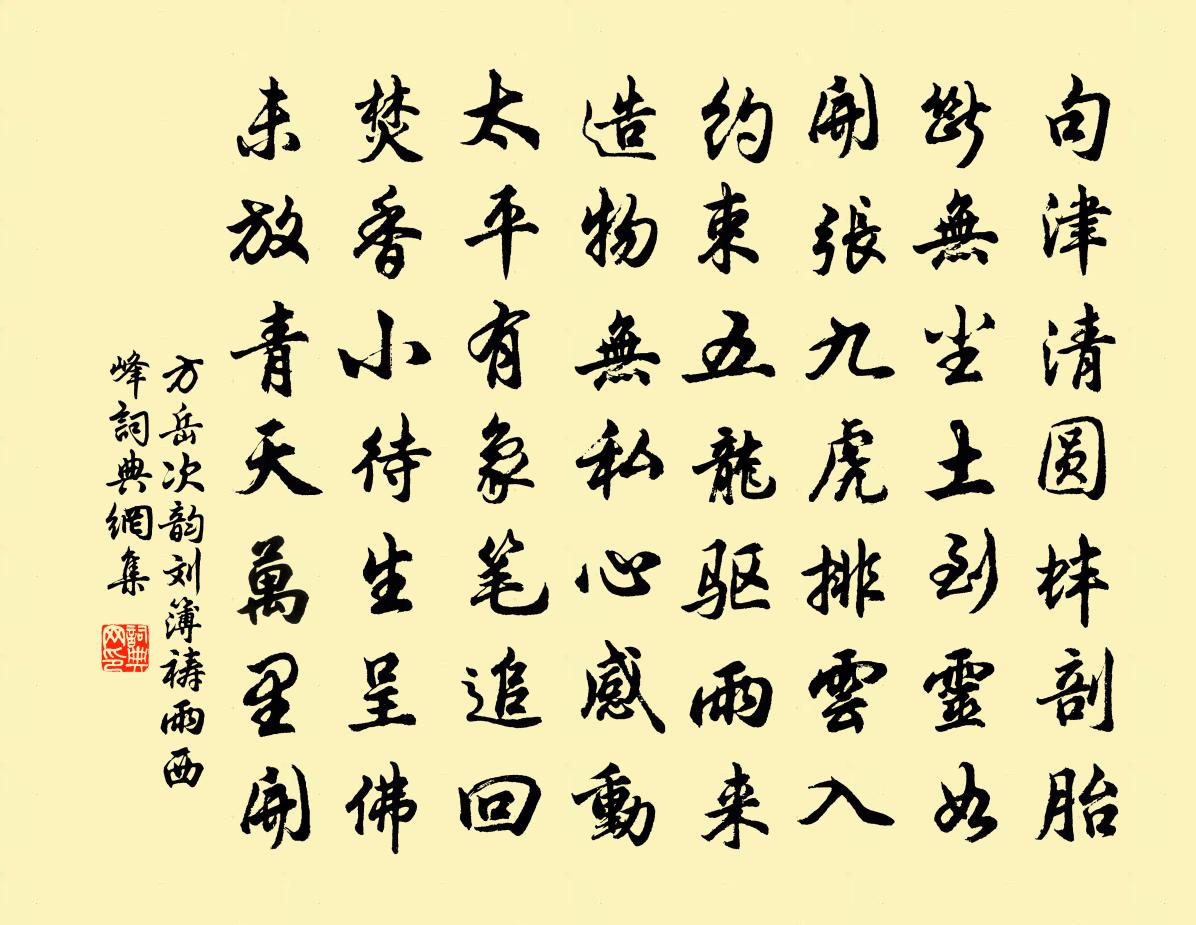 句津清圆蚌剖胎
斷無尘土到靈台
開張九虎排雲入
約束五龍驱雨来
造物無私心感動
太平有象笔追回
焚香小待生呈佛
未放青天萬里開
方岳次韵刘簿祷雨西
峰詞典網集
詞典网印